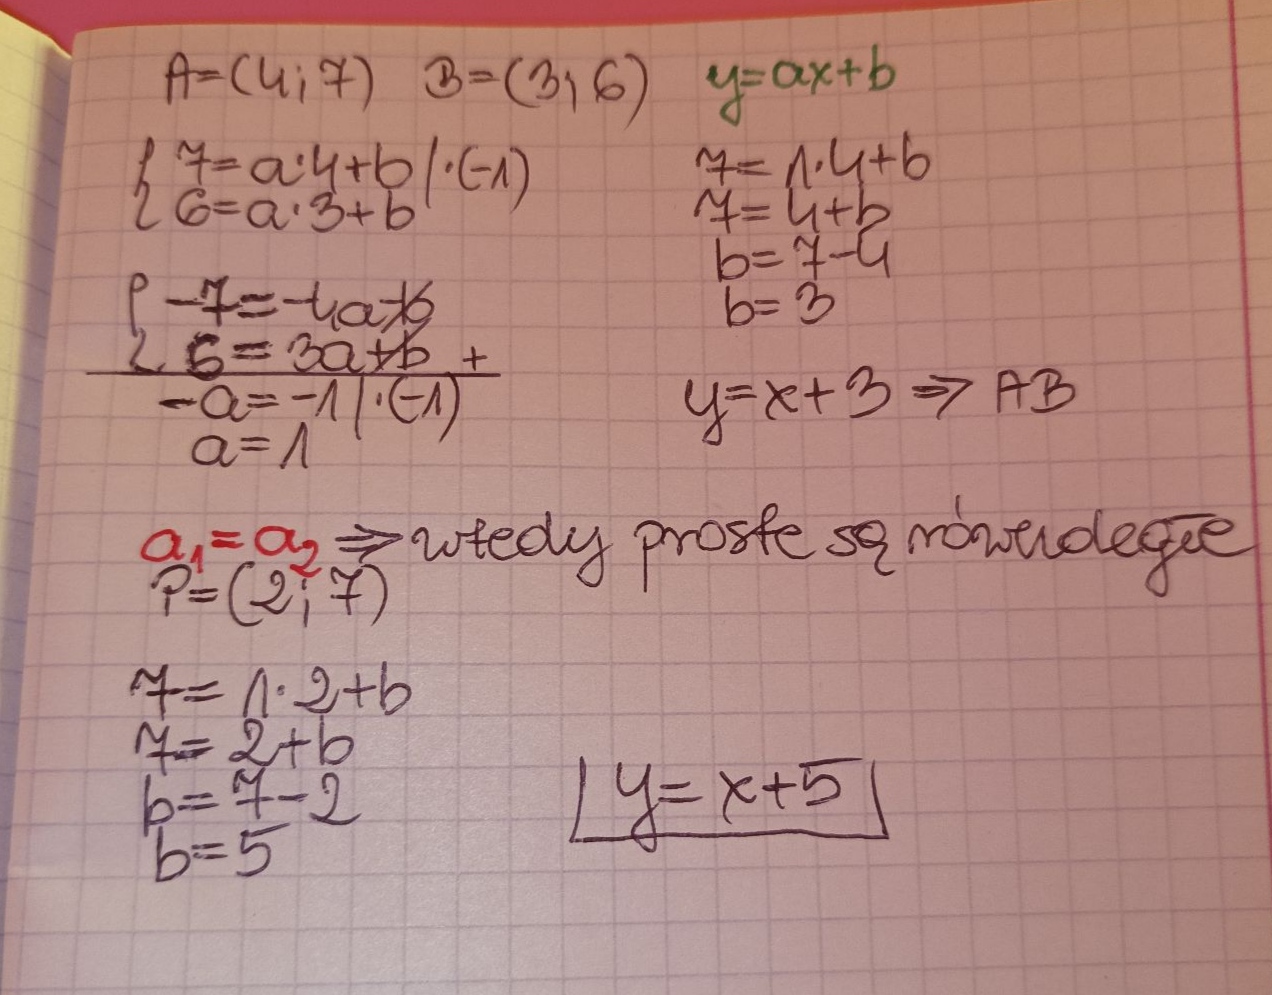 A=(4;7) B=(3;6) y=ax+b
{ 7=a·4+b /·(-1)
{ 6=a·3+b
{ -7=-4a-b
{ 6=3a+b +
-a=-1 /·(-1)
a=1
7=1·4+b
7=4+b
b=7-4
b=3
y=x+3 ⇒ AB
a₁=a₂ ⇒ wtedy proste są równoległe
P=(2;7)
7=1·2+b
7=2+b
b=7-2
b=5
y=x+5